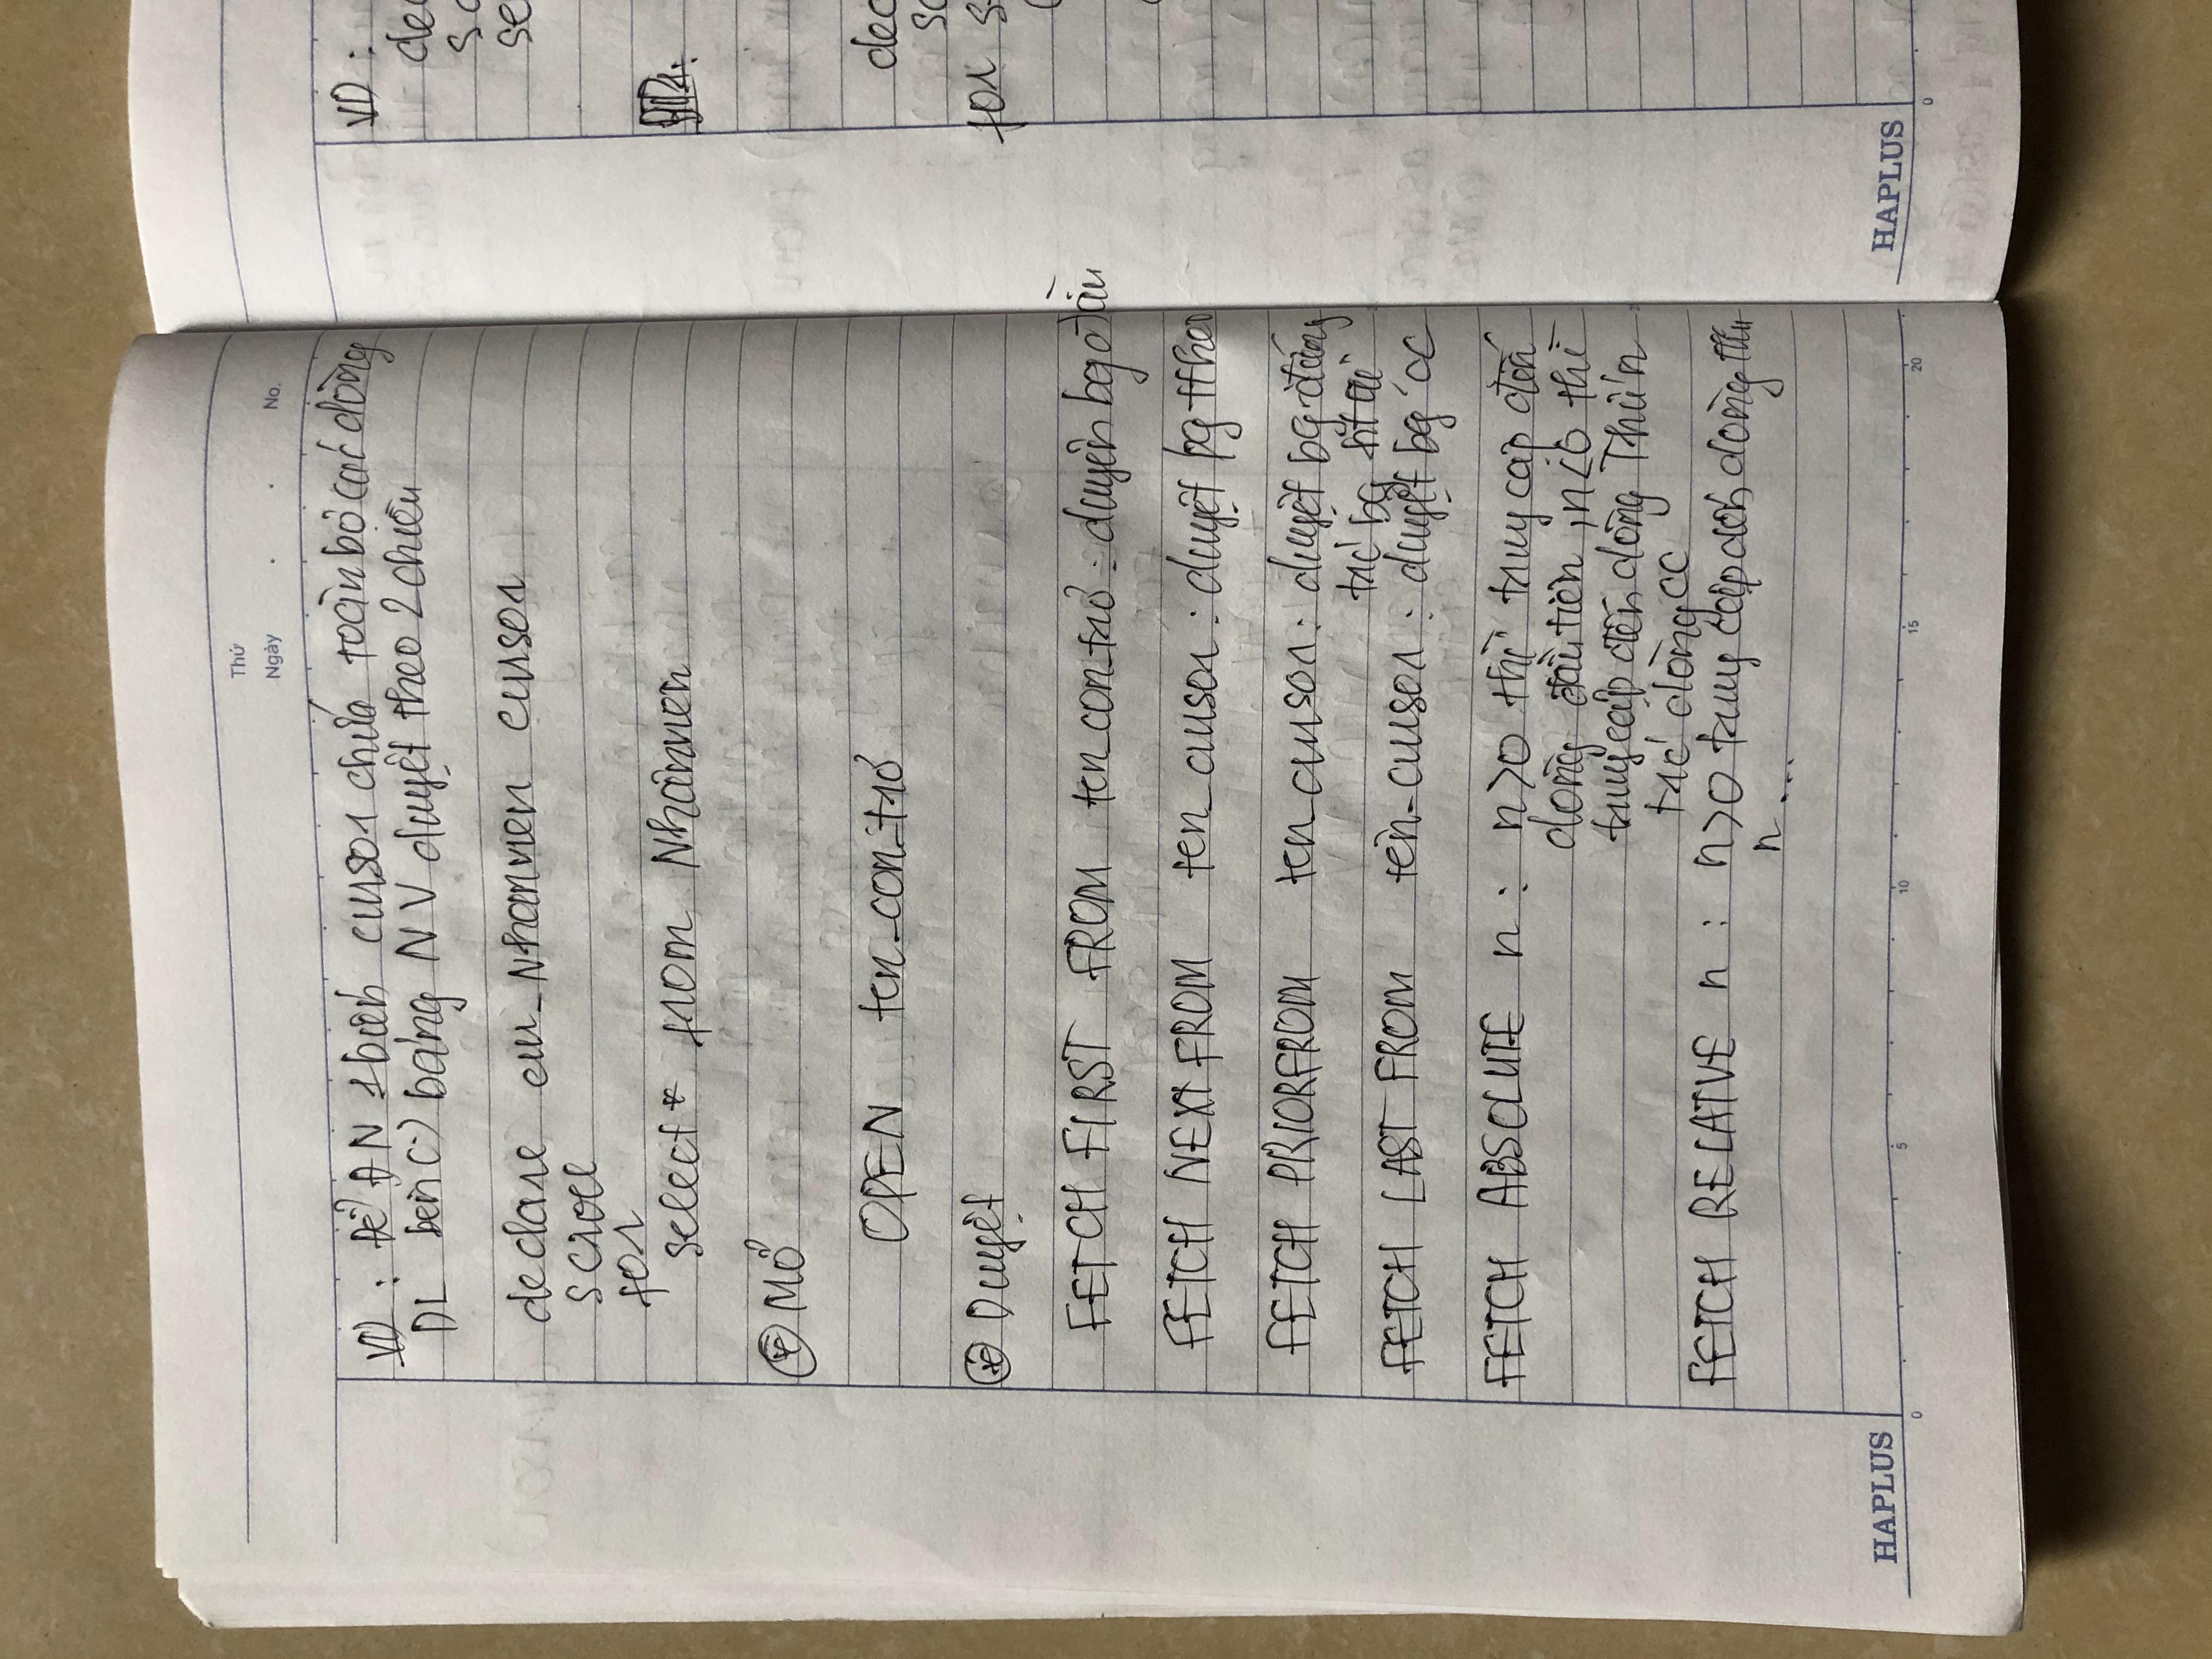 Thứ
Ngày . . No.
VD : Để ĐN 1 biến cursor chứa toàn bộ các dòng
DL bên (.) bảng NV duyệt theo 2 chiều
declare cu_Nhanvien cursor
scroll
for
select * from Nhânvien
* Mở
OPEN ten_con_trỏ
* Duyệt
FETCH FIRST FROM ten_con_trỏ : duyện bg đầu
FETCH NEXT FROM ten_cursor : duyệt bg ttheo
FETCH PRIOR FROM ten_cursor : duyệt bg đứng
trc bg ht tại
FETCH LAST FROM tên_cursor : duyệt bg CC
FETCH ABSOLUTE n : n>0 thì truy cập đến
dòng đầu tiên , n<0 thì
truy cập đến dòng Thứ n
trc dòng CC
FETCH RELATVE n : n>0 truy cập đến dòng thứ
n ...
HAPLUS
0 5 10 15 20
VD :
dec
sc
se
dec
sc
for s
HAPLUS
0